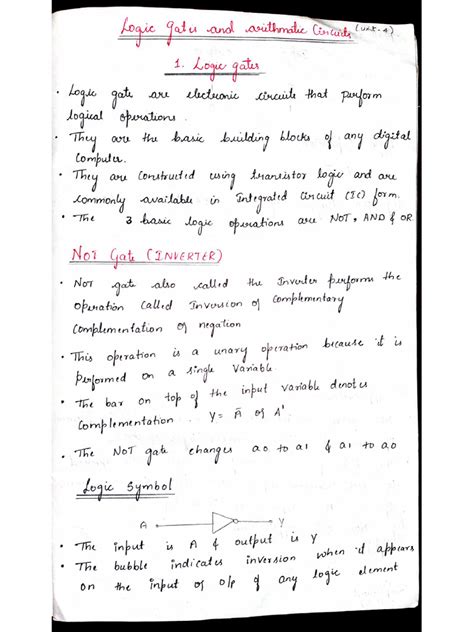 Logic Gates and arithmatic Circuits (Unit-4)
1. Logic gates
• Logic gate are electronic circuits that perform
logical operations.
• They are the basic building blocks of any digital
Computer.
• They are Constructed using transistor logic and are
commonly available in Integrated Circuit (IC) form.
• The 3 basic logic operations are NOT, AND & OR.
NOT Gate (INVERTER)
• NOT gate also called the Inverter performs the
operation called Inversion of Complementary
Complementation of negation
• This operation is a unary operation because it is
performed on a single variable
• The bar on top of the input variable denotes
Complementation. Y = Ā or A'
• The NOT gate changes a 0 to a 1 & a 1 to a 0
Logic Symbol
A Y
• The input is A & output is Y
• The bubble indicates inversion when it appears
on the input or o/p of any logic element